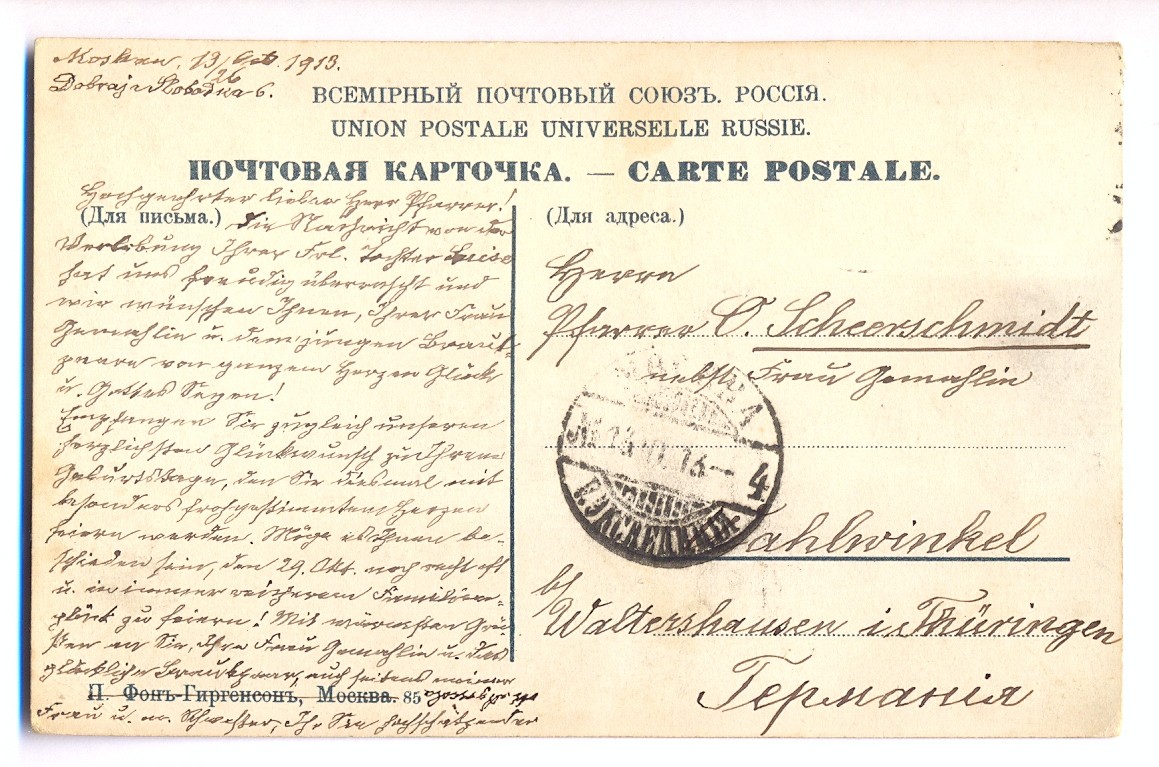 Moskau, 13/26 Okt. 1913.
Dobraja Slobodka 6.
ВСЕМІРНЫЙ ПОЧТОВЫЙ СОЮЗЪ. РОССІЯ.
UNION POSTALE UNIVERSELLE RUSSIE.
ПОЧТОВАЯ КАРТОЧКА. — CARTE POSTALE.
Hochgeehrter lieber Herr Pfarrer!
(Для письма.)
die Nachricht von der
Verlobung Ihrer Frl. Tochter Luise
hat uns freudig überrascht und
wir wünschen Ihnen, Ihrer Frau
Gemahlin u. dem jungen Braut-
paare von ganzem Herzen Glück
u. Gottes Segen!
Empfangen Sie zugleich unseren
herzlichsten Glückwunsch zu Ihrem
Geburtstage, den Sie diesmal mit
besonders frohgestimmtem Herzen
feiern werden. Möge es Ihnen be-
schieden sein, den 29. Okt. noch recht oft
u. in immer reicherem Familien-
glück zu feiern! Mit wärmsten Grü-
ßen an Sie, Ihre Frau Gemahlin u. das
glückliche Brautpaar, auch seitens meiner
П. Фонъ-Гиргенсонъ, Москва. 85
Frau u. m. Schwester, Ihr Sie hochschätzender
(Для адреса.)
Herrn
Pfarrer O. Scheerschmidt
nebst Frau Gemahlin
4
Wahlwinkel
b/
Waltershausen i. Thüringen
Германія